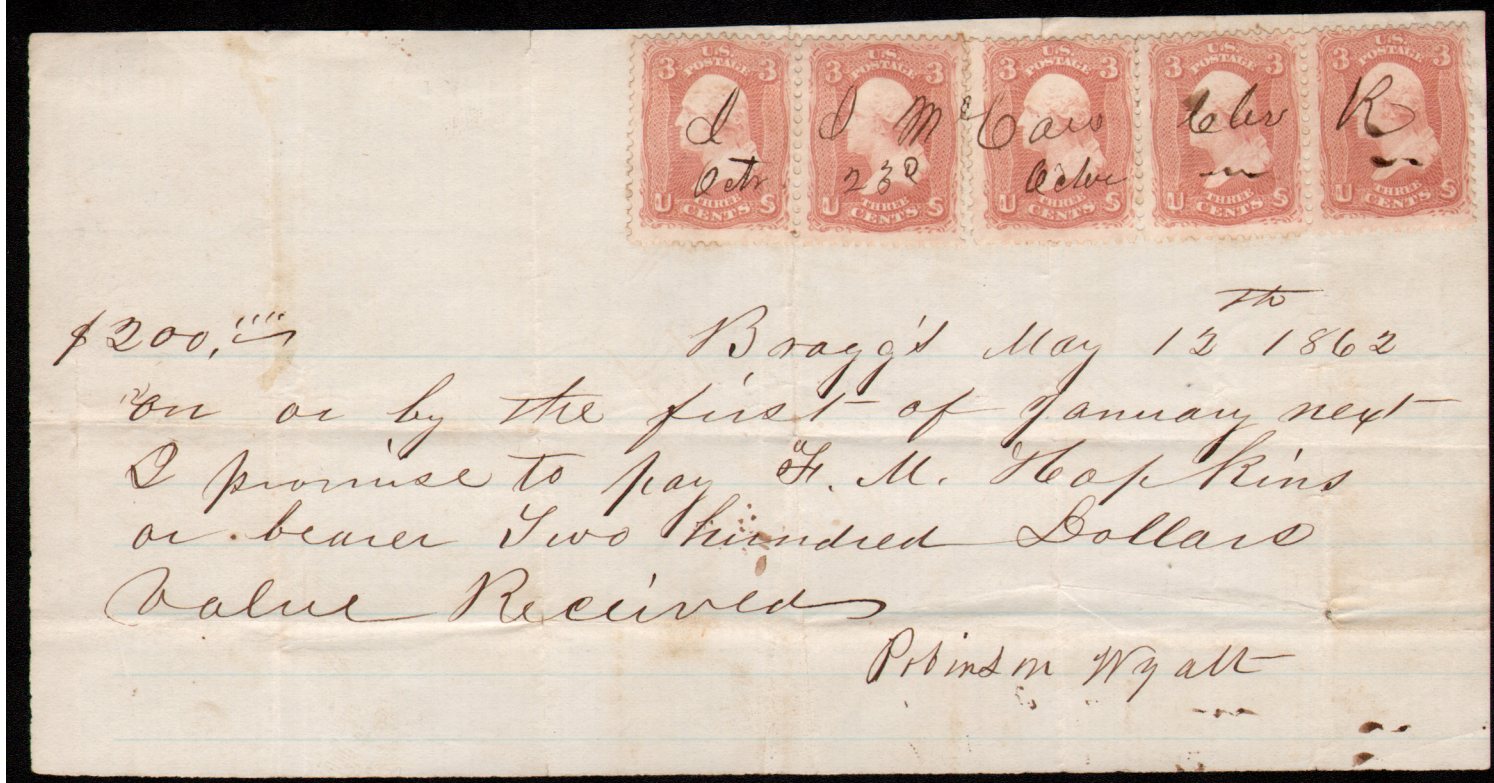 U.S. POSTAGE 3 3 U S THREE CENTS
U.S. POSTAGE 3 3 U S THREE CENTS
U.S. POSTAGE 3 3 U S THREE CENTS
U.S. POSTAGE 3 3 U S THREE CENTS
U.S. POSTAGE 3 3 U S THREE CENTS
Clk R
Octr 23d
$200,"" Bragg's May 12th 1862
on or by the first of January next
I promise to pay F. M. Hopkins
or bearer Two hundred Dollars
Value Received
Robinson Wyatt